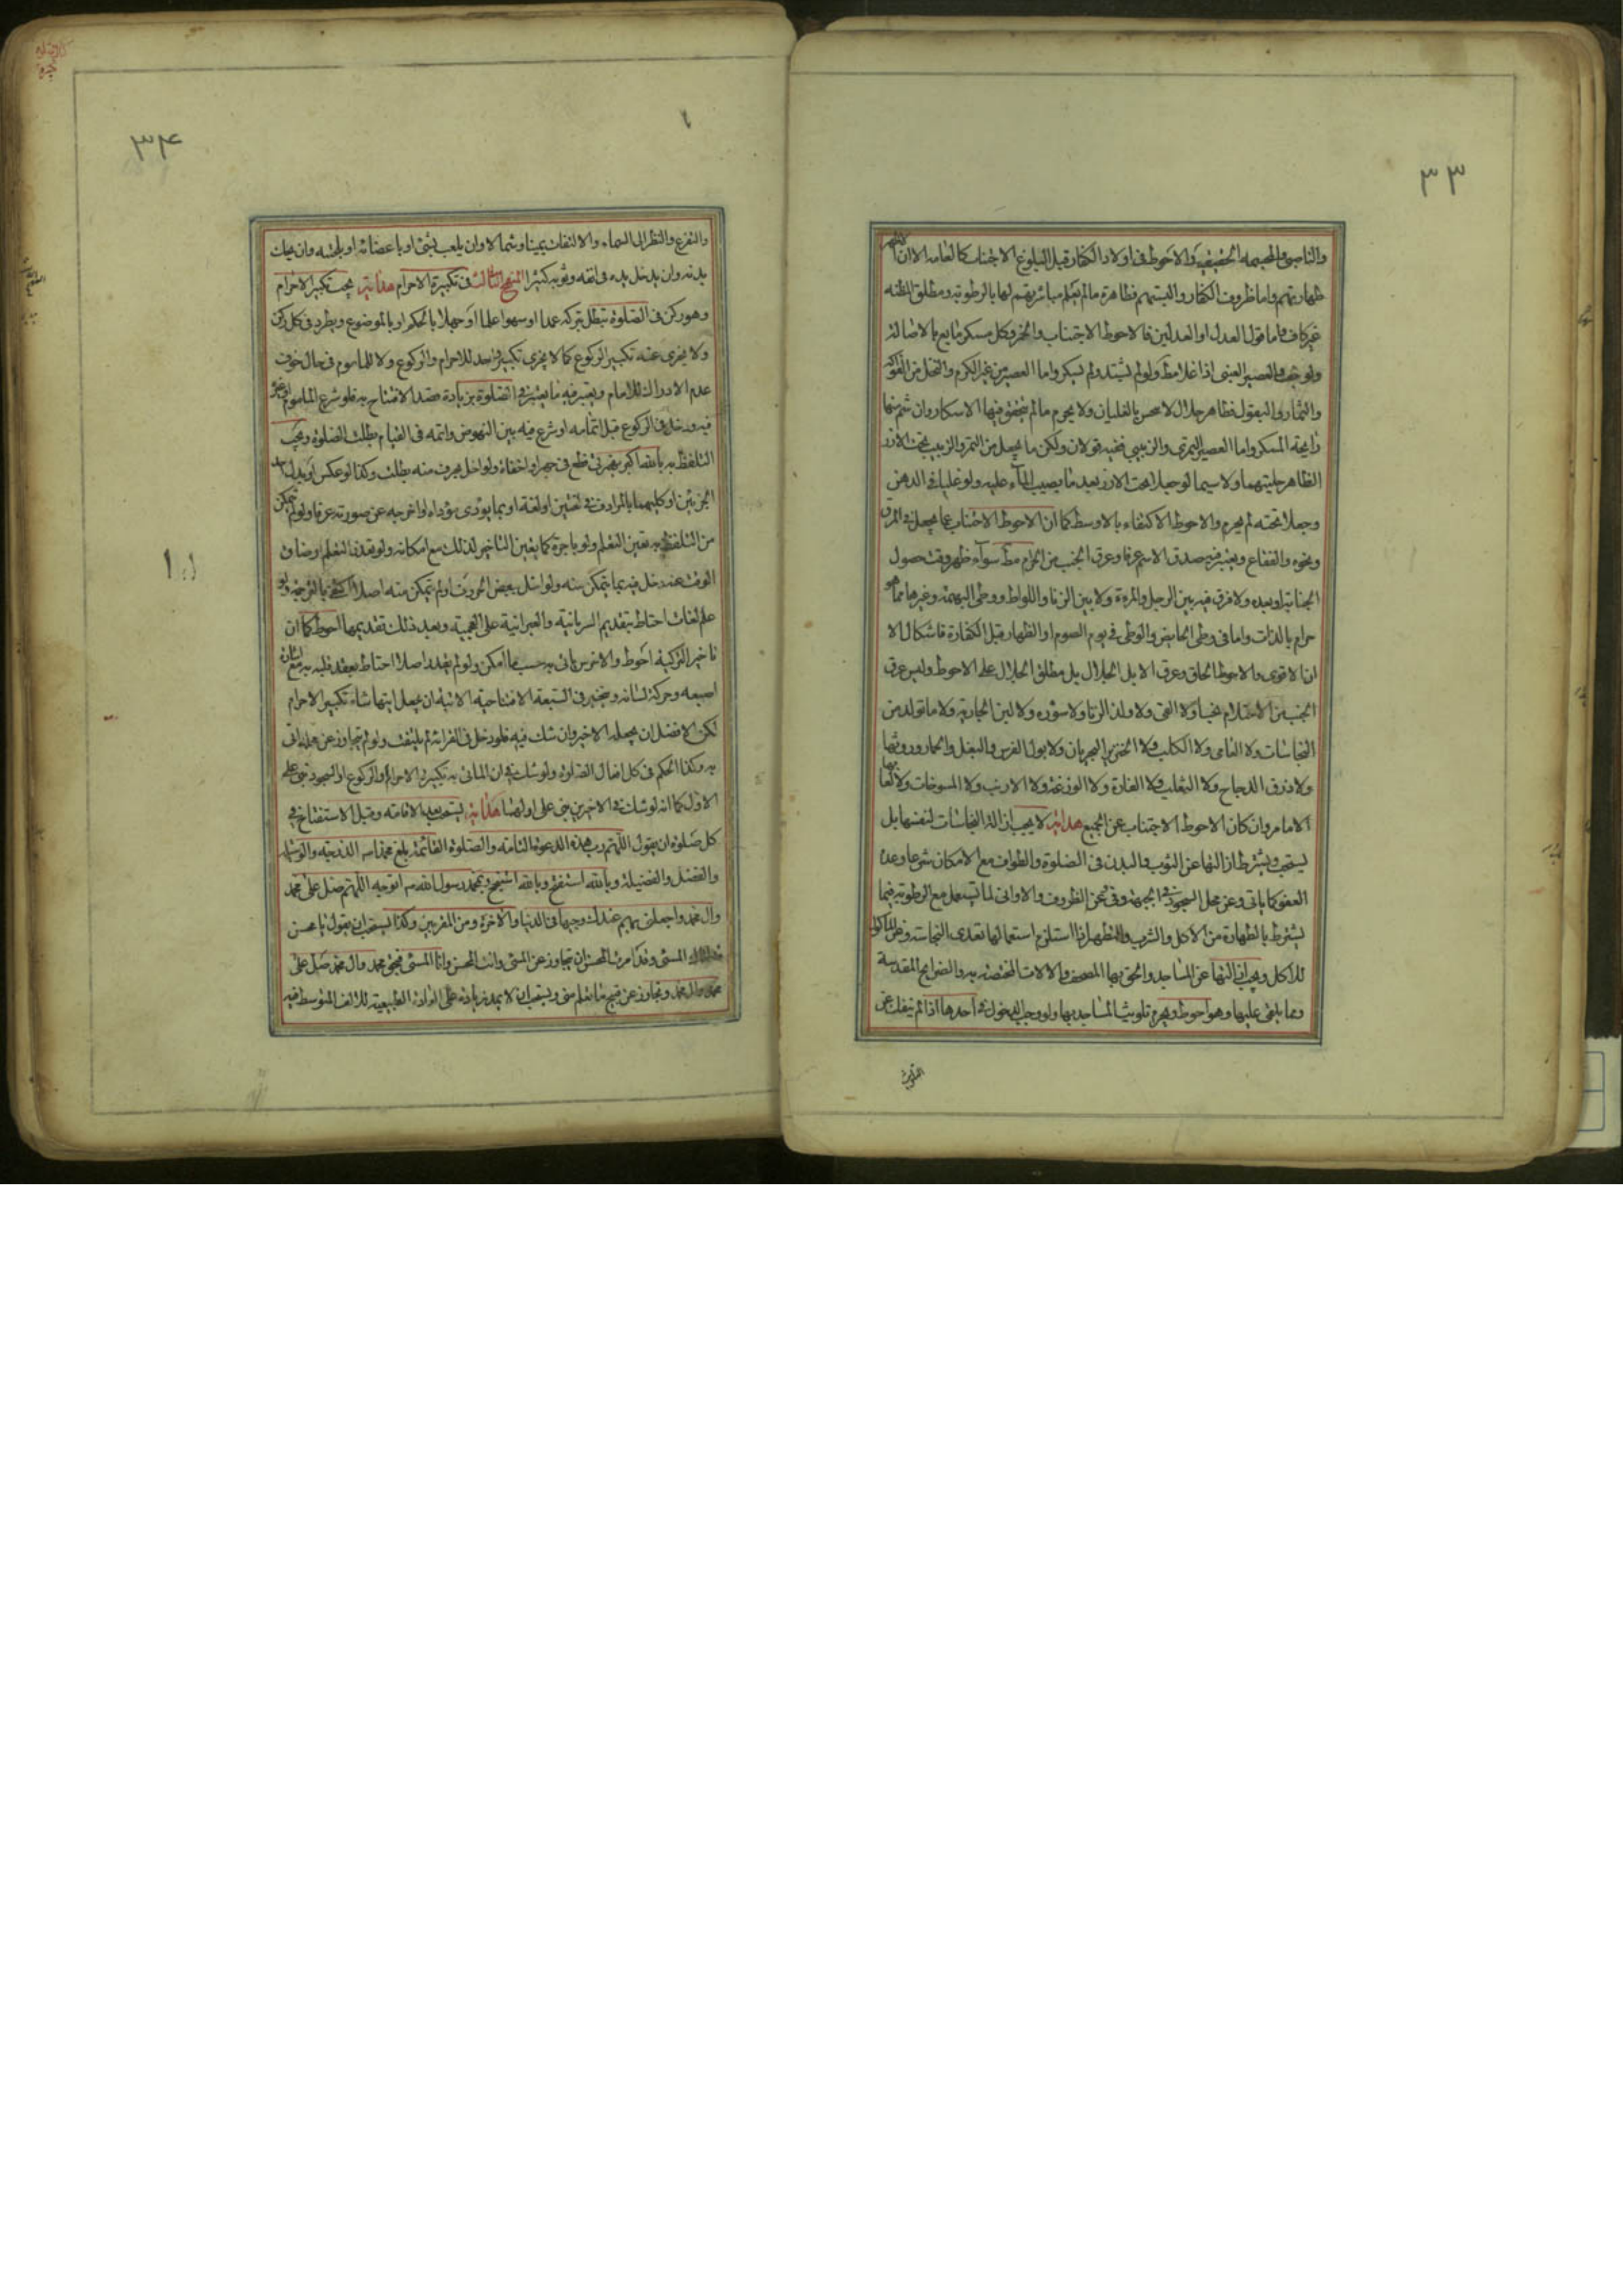 ٣٣
والناصبى والمجسمه الحقيقيه والاحوط فى اولاد الكفار قبل البلوغ الاجتناب كالعامه الا ان
طهارتهم واما ظروف الكفار والبستهم فطاهرة مالم يعلم مباشرتهم لها بالرطوبه ومطلق الظنه
غير كاف واما قول العدل او العدلين فالاحوط الاجتناب والخمر وكل مسكر مايع بالاصالة
ولو جف والعصير العنبى اذا غلا مط ولو لم يشتد ولم يسكر واما العصير من غير الكرم والنخل من الفواكه
والثمار والبقول فطاهر حلال لا ينجس بالغليان ولا يحرم مالم يتحقق فيها الاسكار وان شم منها
رايحة المسكر واما العصير التمرى والزبيبى ففيه قولان ولكن ما يجعل من التمر والزبيب تحت الارز
الظاهر حليتهما ولا سيما لو جعلا تحت الارز بعد ما يصيب الماء عليه ولو غليا فى الدهن
وجعلا تحته لم يحرم والاحوط الاكتفاء بالاوسط كما ان الاحوط الاجتناب عما يجعل فى المرق
ونحوه والفقاع ويعتبر فيه صدق الاسم عرفا وعرق الجنب من الحرام مط سوآء ظهر وقت حصول
الجنابة او بعده ولا فرق فيه بين الرجل والمرءة ولا بين الزنا واللواط ووطى البهيمة وغيرها مما هو
حرام بالذات واما فى وطى الحايض والوطى فى يوم الصوم او الظهار قبل الكفارة فاشكال الا
ان الاقوى والاحوط الحاق وعرق الابل الجلال بل مطلق الجلال على الاحوط وليس عرق
الجنب من الاحتلام نجسا ولا القى ولا ولد الزنا ولا سؤره ولا لبن الجارية ولا ما تولد من
النجاسات ولا العامى ولا الكلب ولا الخنزير البحريان ولا بول الفرس والبغل والحمار وروثها
ولا ذرق الدجاج ولا الثعلب ولا الفارة ولا الوزغة ولا الارنب ولا المسوخات ولا لعابها
الامامر وان كان الاحوط الاجتناب عن الجميع هداية لا يجب ازالة النجاسات لنفسها بل
يستحب ويشترط ازالتها عن الثوب والبدن فى الصلوة والطواف مع الامكان شرعا وعده
العفو كما ياتى وعن محل السجود فى الجبهة وفى عن الظروف والاوانى لما تستعمل مع الرطوبه فيما
يشترط بالطهارة من الاكل والشرب والتطهر اذا استلزم استعمالها تعدى النجاسة وعن المأكول
للاكل ويجب ازالتها عن المساجد والحق بها المصحف والالات المختصه به والضرايح المقدسة
وما يلقى عليها وهو احوط ويحرم تلويث المساجد بها ولو وجب الدخول فى احدها اذا لم ينفك عن
التلويث
٣٤
والتفزع والنظر الى السماء والالتفات يمينا وشمالا وان يلعب بشئ او باعضائه او بلحيته وان يحك
بدنه وان يدخل يده فى انفه وثوبه كثيرا المنهج الثالث فى تكبيرة الاحرام هداية يجب تكبير الاحرام
وهو ركن فى الصلوة تبطل بتركه عمدا او سهوا علما او جهلا بالحكم او بالموضوع ويطرد فى كل ركن
ولا يجزى عنه تكبير الركوع كما لا يجزى تكبير واحد للاحرام والركوع ولا للماموم فى حال خوف
عدم الادراك للامام ويعتبر فيه ما يعتبر فى الصلوة بزيادة قصد الافتتاح به فلو شرع الماموم
فيه ودخل فى الركوع قبل اتمامه او شرع فيه بين النهوض واتمه فى القيام بطلت الصلوة ويجب
التلفظ به بالله اكبر بغير قطع همزه او اخفاءه ولو اخل بحرف منه بطلت وكذا لو عكس او بدل
الجزئين او كليهما بالمرادف فى لغتين او لغة او بما يؤدى مؤداه او اخرجه عن صورته عرفا ولو لم يتمكن
من التلفظ به تعين التعلم ولو باجرة كما يتعين التاخير لذلك مع امكانه ولو تعذر التعلم او ضاق
الوقت عنه دخل فيه بما يتمكن منه ولو اخل ببعض الحروف او لم يتمكن منه اصلا اكتفى بالترجمه ولو
علم لغات احتاط بتقديم السريانيه والعبرانية على العجميه وبعد ذلك تقديمها احوط كما ان
تاخير التركيه احوط والاخرس ياتى به حسب ما امكن ولو لم يقدر اصلا احتاط بعقد قلبه به مع اشارة
اصبعه وحركة لسانه ويتخير فى السبعة الافتتاحيه الاتية ان يجعل ايتها شاء تكبير الاحرام
لكن الافضل ان يجعله الاخير وان شك فيه فلو دخل فى القرائه لم يلتفت ولو لم يتجاوز عن محله اتى
به وكذا الحكم فى كل افعال الصلوة ولو شك فى ان الماتى به تكبيرة الاحرام او الركوع او السجود بنى على
الاول كما انه لو شك فى الاخيرين بنى على اولهما هداية يستحب بعد الاقامه وقبل الاستفتاح فى
كل صلوة ان يقول اللهم رب هذه الدعوة التامه والصلوة القائمة بلغ محمدا ص الدرجة والوسيلة
والفضل والفضيلة وبالله استفتح وبالله استنجح وبمحمد رسول الله ص اتوجه اللهم صل على محمد
وال محمد واجعلنى بهم عندك وجيها فى الدنيا والاخرة ومن المقربين وكذا يستحب ان يقول يا محسن
قد اتاك المسئ وقد امرت المحسن ان يتجاوز عن المسئ وانت المحسن وانا المسئ فبحق محمد وال محمد صل على
محمد وال محمد وتجاوز عن قبيح ما تعلم منى ويستحب ان لا يمد زيادة على العادة الطبيعية للالف المتوسط فيه